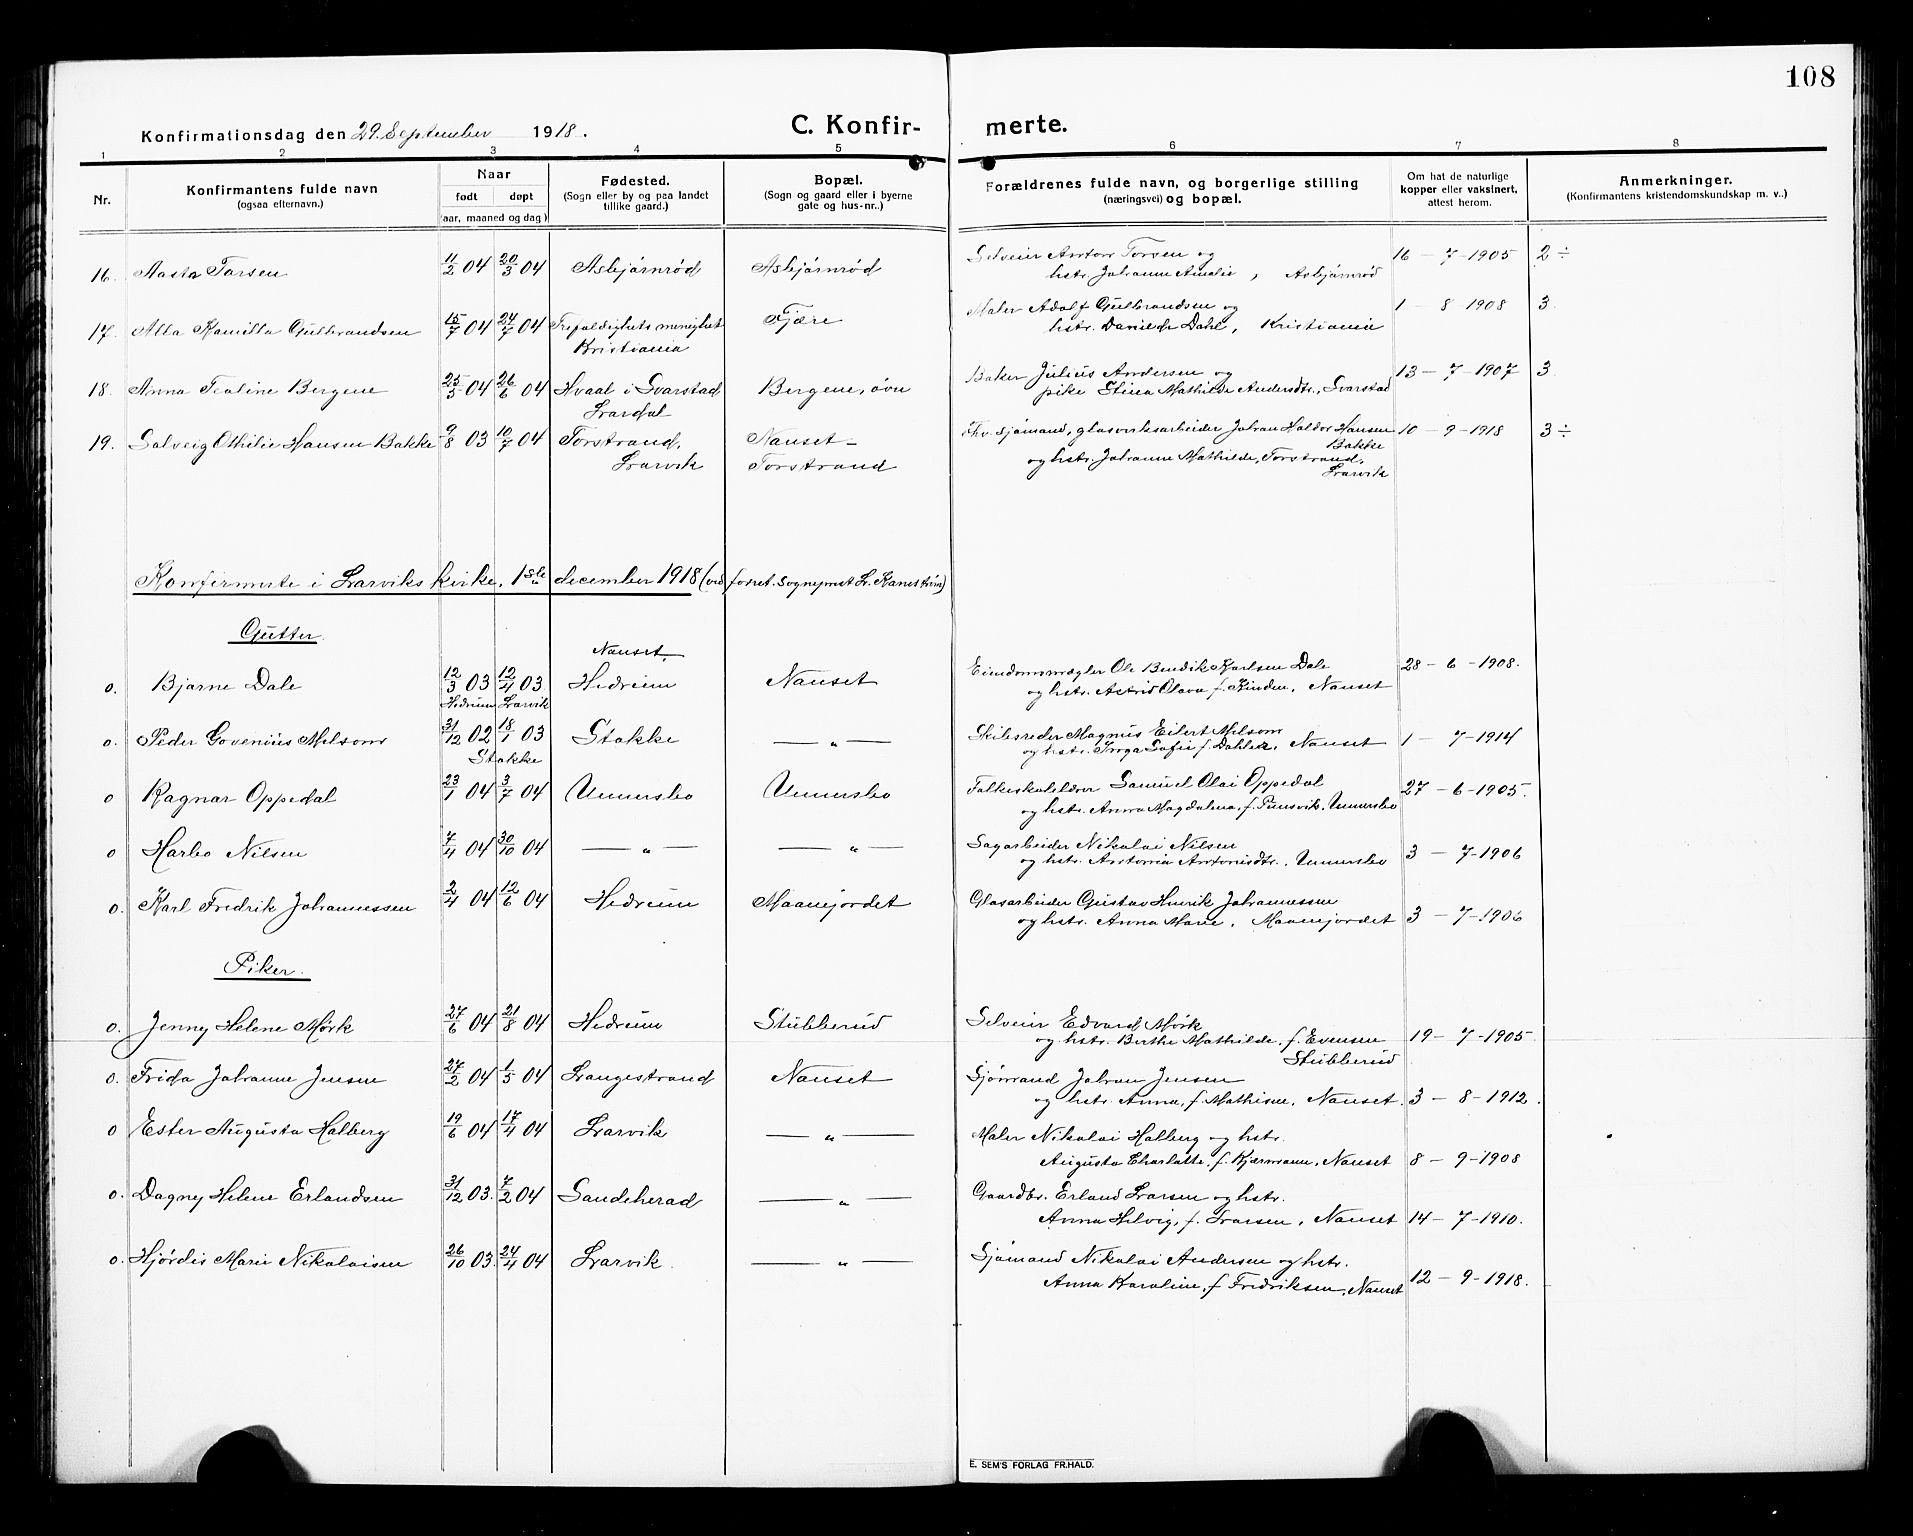 108
Konfirmationsdag den 29. September 1918. C. Konfir- merte.
1 2 3 4 5 6 7 8
Nr. Konfirmantens fulde navn (ogsaa efternavn.) Naar født døpt (aar, maaned og dag) Fødested. (Sogn eller by og paa landet tillike gaard.) Bopæl. (Sogn og gaard eller i byerne gate og hus-nr..) Forældrenes fulde navn, og borgerlige stilling (næringsvei) og bopæl. Om hat de naturlige kopper eller vaksinert, attest herom. Anmerkninger. (Konfirmantens kristendomskundskap m. v..)
16. Aasta Torsen 11/2 04 20/3 04 Asbjørnrød Asbjørnrød Selveier Anton Torsen og 16 - 7 - 1905 2 ÷
hstr. Johanne Amalie, Asbjørnrød
17. Alla Kamilla Gulbrandsen 15/7 04 24/7 04 Trefoldighets menighet Fjære Maler Adolf Gulbrandsen og 1 - 8 1908 3.
Kristiania hstr. Dahl, Kristiania
18. Anna Tealine Bergene 25/3 04 26/6 04 Hvaal i Svarstad Bergene, øvn Baker Julius Andersen og 13 - 7 - 1907 3.
Lardal pike Stina Mathilde Andersdtr., Svarstad
19. Solveig Othilie Hansen Bakke 9/8 03 10/7 04 Torstrand, Nanset - Fhv. sjømand, glasverksarbeider Johan Haldor Hansen 10 - 9 - 1918 3 ÷
Bakke
Larvik Torstrand og hstr. Johanne Mathilde, Torstrand,
Larvik
Konfirmerte i Larviks kirke, 1ste december 1918 (ved forret. Sogneprest L. Kanestrøm)
Gutter.
Nanset,
o. Bjarne Dale 12/3 03 12/4 03 Hedrum Nanset Eiendomsmægler Ole Bendik Karlsen Dale 28 - 6 - 1908.
Hedrum Larvik og hstr. Astrid Olava f. Kinden, Nanset
o. Peder Govenius Melsom 31/12 02 18/1 03 Stokke — „ — Skibsreder Magnus Eilert Melsom 1 - 7 - 1914
Stokke og hstr. Inga Sofie f. Dahler, Nanset
o Ragnar Oppedal 23/1 04 3/7 04 Unnersbo Unnersbo Folkeskolelærer Samuel Olai Oppedal 27 - 6 - 1905.
og hstr. Anna Magdalena, f. Punsvik, Unnersbo
o Harbo Nilsen 7/4 04 30/10 04 — „ — — „ — Sagarbeider Nikolai Nilsen 3 - 7 - 1906
og hstr. Antonia Antonisdtr., Unnersbo
o. Karl Fredrik Johannessen 2/4 04 12/6 04 Hedrum Maanejordet Glasarbeider Gustav Henrik Johannessen
og hstr. Anna Marie, Maanejordet 3 - 7 - 1906
Piker.
o. Jenny Helene Mørk 27/6 04 21/8 04 Hedrum Stubberud Selveier Edvard Mørk
og hstr. Berthe Mathilde, f. Evensen 19 - 7 - 1905
Stubberud
o. Frida Johanne Jensen 27/2 04 1/5 04 Langestrand Nanset Sjømand Johan Jensen
og hstr. Anna, f. Mathisen, Nanset. 3 - 8 - 1912.
o Ester Augusta Holberg 19/6 04 17/4 04 Larvik — „ — Maler Nikolai Holberg og hstr.
Augusta Charlotte, f. Kjærmann, Nanset 8 - 9 - 1908
o. Dagny Helene Erlandsen 31/12 03. 7/2 04 Sandeherad — „ — Gaardbr. Erland Larsen og hstr.
Anna Helvig, f. Larsen, Nanset 14 - 7 - 1910.
o. Hjørdis Marie Nikolaisen 26/10 03. 24/4 04 Larvik. — „ — Sjømand Nikolai Andersen og hstr.
Anna Karoline, f Fredriksen, Nanset 12 - 9 - 1918.
E. SEM'S FORLAG FR.HALD.